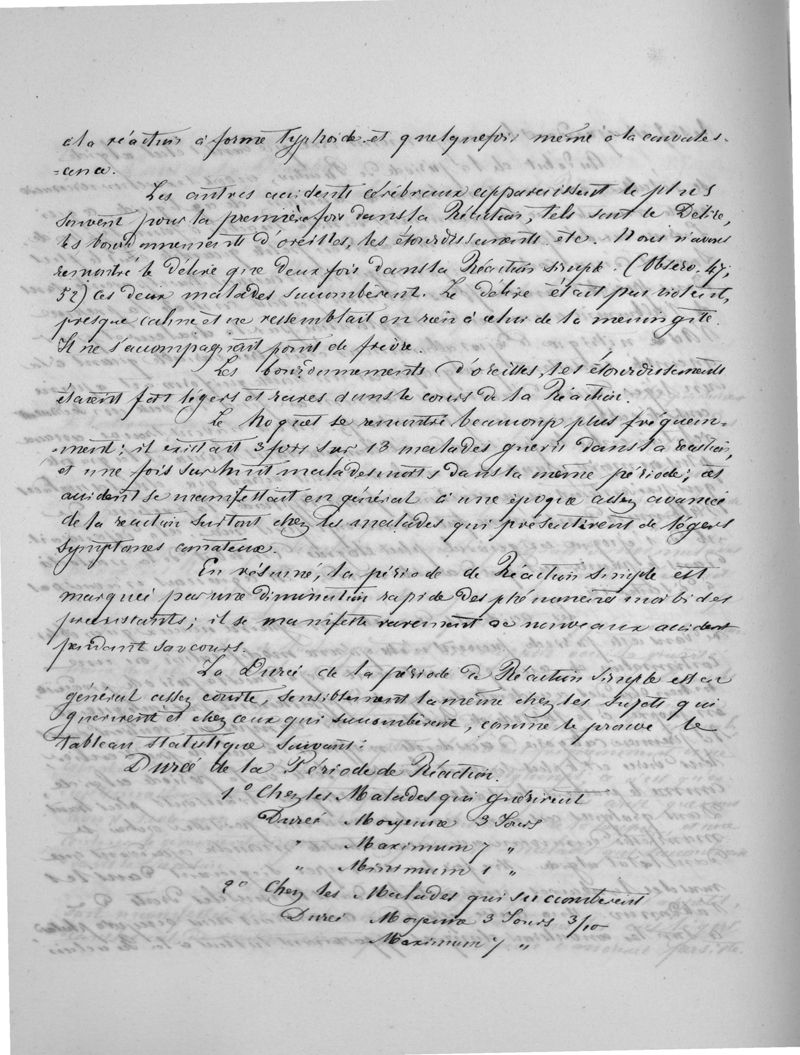 à la réaction à forme typhoïde et quelquefois même à la convales-
=cence.
Les autres accidents cérébraux apparaissent le plus
souvent pour la première fois dans la Réaction, tels sont le Délire,
les bourdonnements d'oreilles, les étourdissements etc. Nous n'avons
rencontré le délire que deux fois dans la Réaction simple. (Observ. 47,
52) ces deux malades succombèrent. Le délire était peu violent,
presque calme et ne ressemblait en rien à celui de la meningite.
Il ne s'accompagnait point de fièvre.
Les bourdonnements d'oreilles, les étourdissements
étaient fort légers et rares dans le cours de la Réaction.
Le hoquet se rencontre beaucoup plus fréquem-
-ment; il existait 3 fois sur 13 malades guéris dans la réaction,
et une fois sur huit malades morts dans la même période; cet
accident se manifestait en général à une époque assez avancé
de la reaction surtout chez les malades qui présentèrent de légers
symptomes comateux.
En résumé, la période de Réaction simple est
marquée par une diminution rapide des phénomènes morbides
preexistants; il se manifeste rarement de nouveaux accidents
pendant son cours.
La Durée de la période de Réaction simple est en
général assez courte, sensiblement la même chez les sujets qui
guérirent et chez ceux qui succombèrent, comme le prouve le
tableau statistique suivant:
Durée de la Période de Réaction.
1° Chez les Malades qui guérirent
Durée Moyenne 3 Jours
" Maximum 7 "
" Minimum 1 "
2° Chez les Malades qui succombèrent
Durée Moyenne 3 Jours 3/10
Maximum 7 "